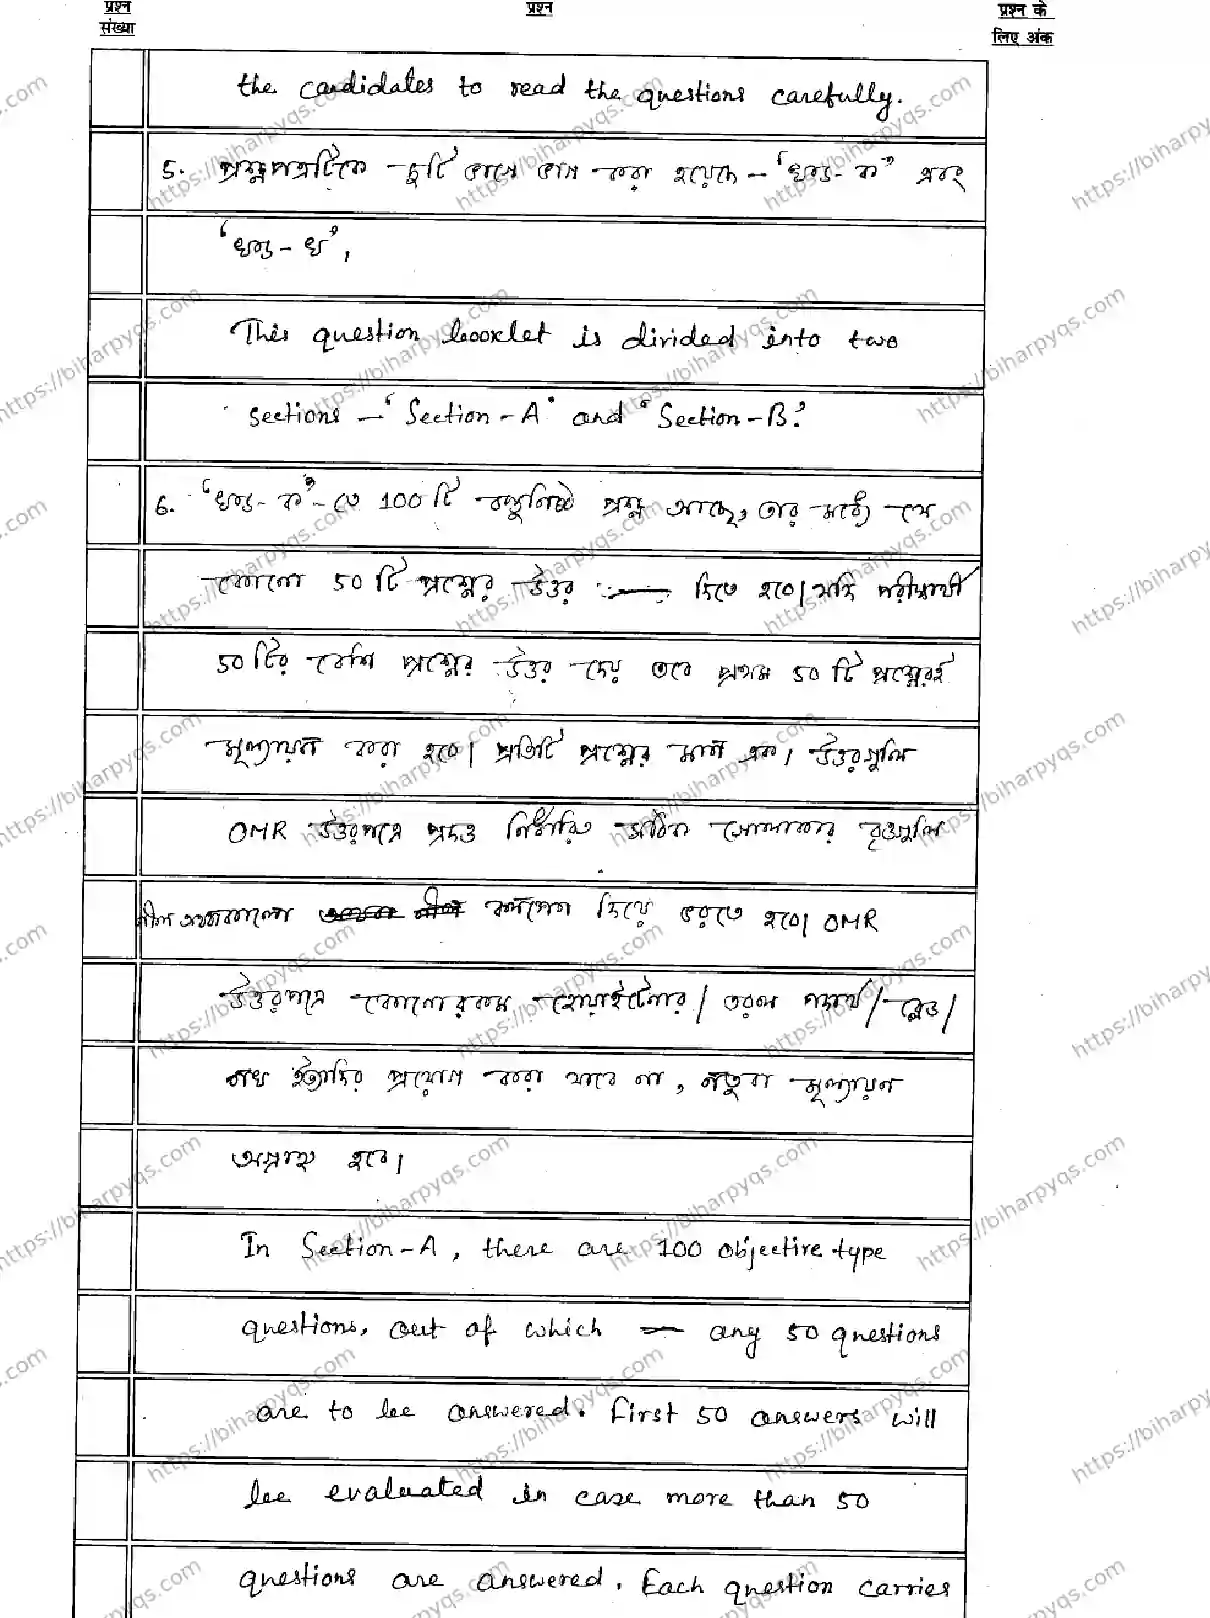 प्रश्न संख्या
प्रश्न
प्रश्न के लिए अंक
the candidates to read the questions carefully.
5. প্রশ্নপত্রটিকে দুটি ভাগে ভাগ করা হয়েছে - 'খণ্ড - ক' এবং
'খণ্ড - খ',
This question booklet is divided into two
sections - 'Section - A' and 'Section - B'.
6. 'খণ্ড - ক' - তে 100 টি বস্তুনিষ্ঠ প্রশ্ন আছে, তার মধ্যে যে
কোনো 50 টি প্রশ্নের উত্তর দিতে হবে। যদি পরীক্ষার্থী
50 টির বেশি প্রশ্নের উত্তর দেয় তবে প্রথম 50 টি প্রশ্নেরই
মূল্যায়ন করা হবে। প্রতিটি প্রশ্নের মান এক। উত্তরগুলি
OMR উত্তরপত্রে প্রদত্ত নির্ধারিত সঠিক গোলাকার বৃত্তগুলি
নীল অথবা কালো বলপেন দিয়ে ভরতে হবে। OMR
উত্তরপত্রে কোনোরকম হোয়াইটনার / তরল পদার্থ / ব্লেড /
নখ ইত্যাদির প্রয়োগ করা যাবে না, নতুবা মূল্যায়ন
অগ্রাহ্য হবে।
In Section - A, there are 100 objective type
questions, out of which any 50 questions
are to be answered. First 50 answers will
be evaluated in case more than 50
questions are answered. Each question carries
https://biharpyqs.com